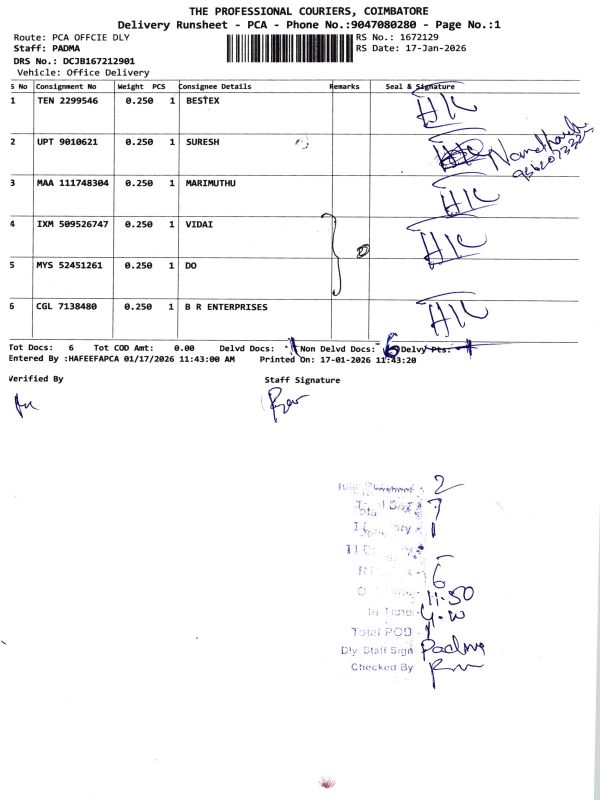 THE PROFESSIONAL COURIERS, COIMBATORE
Delivery Runsheet - PCA - Phone No.:9047080280 - Page No.:1
Route: PCA OFFCIE DLY RS No.: 1672129
Staff: PADMA RS Date: 17-Jan-2026
DRS No.: DCJB167212901
Vehicle: Office Delivery
S No Consignment No Weight PCS Consignee Details Remarks Seal & Signature
1 TEN 2299546 0.250 1 BESTEX
2 UPT 9010621 0.250 1 SURESH
3 MAA 111748304 0.250 1 MARIMUTHU
4 IXM 509526747 0.250 1 VIDAI
5 MYS 52451261 0.250 1 DO
6 CGL 7138480 0.250 1 B R ENTERPRISES
Tot Docs: 6 Tot COD Amt: 0.00 Delvd Docs: 1 Non Delvd Docs: 6 Delvy Pts:
Entered By :HAFEEFAPCA 01/17/2026 11:43:00 AM Printed On: 17-01-2026 11:43:20
Verified By Staff Signature
2
7
1
6
11.50
In Time
Total POD
Dly Staff Sign Padma
Checked By